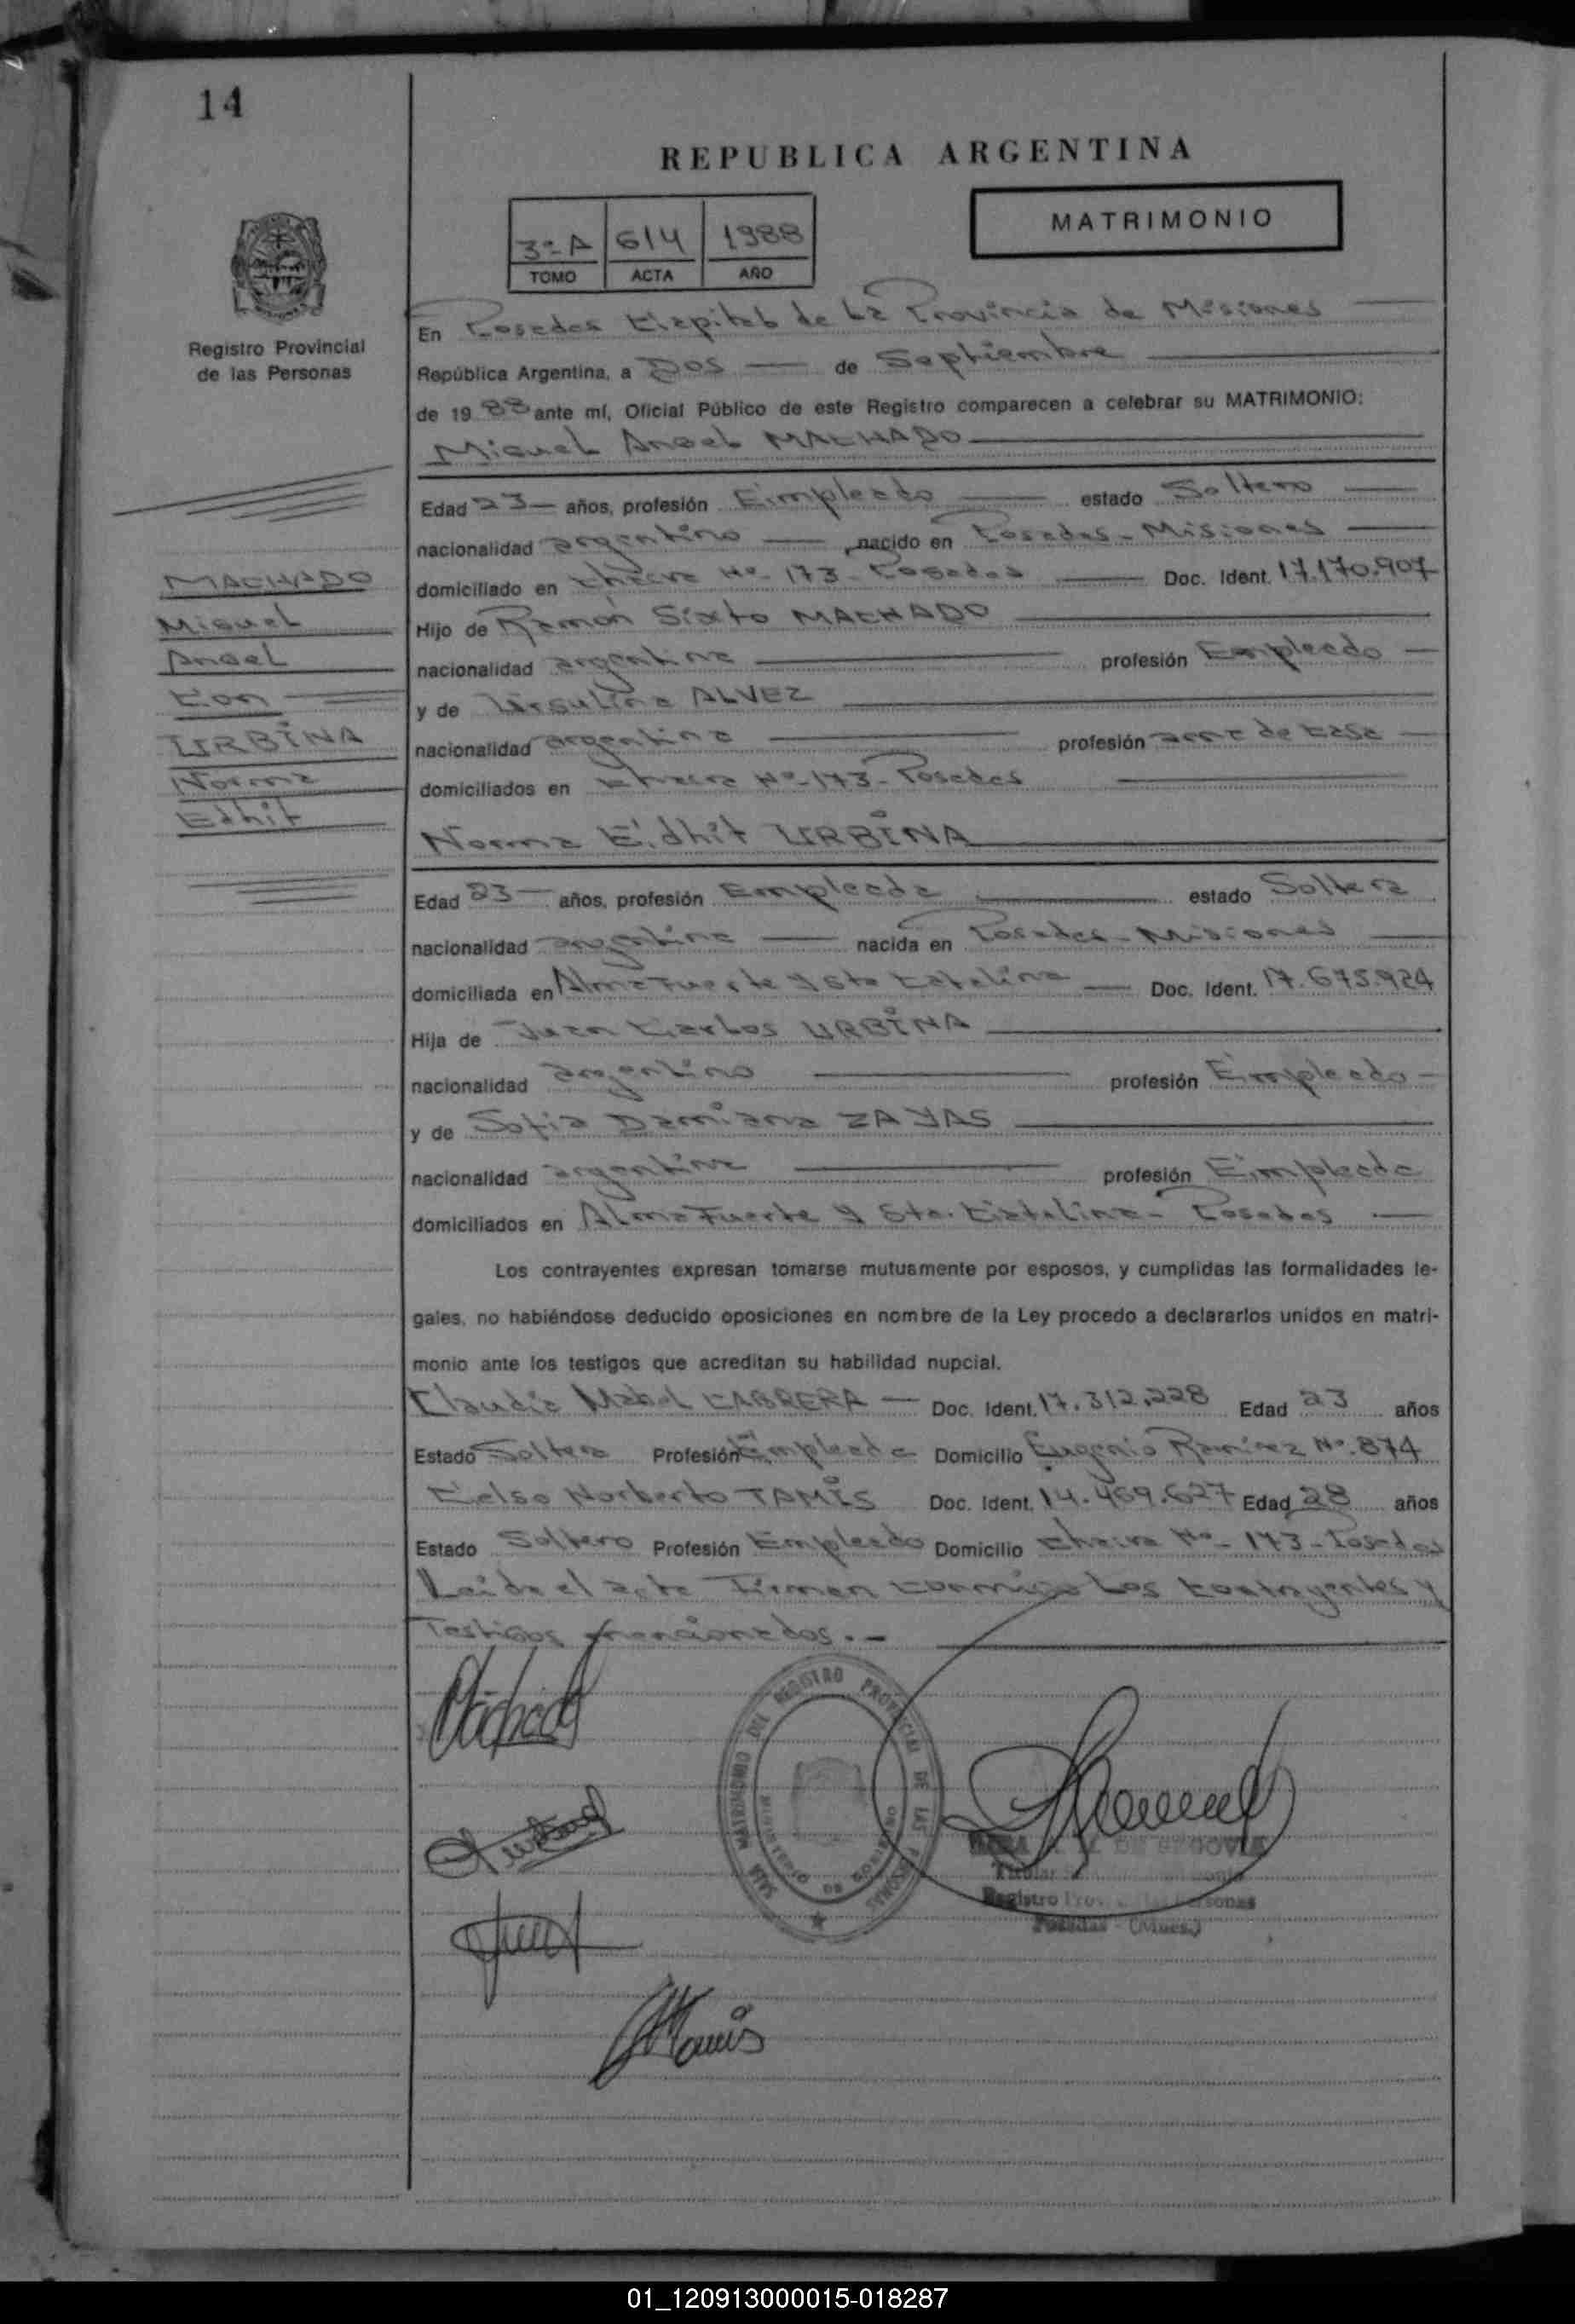 14
REPUBLICA ARGENTINA
MATRIMONIO
3º A 614 1988
TOMO ACTA AÑO
Registro Provincial
de las Personas
En Posadas Capital de la Provincia de Misiones
República Argentina, a Dos de Septiembre
de 1988 ante mí, Oficial Público de este Registro comparecen a celebrar su MATRIMONIO:
Miguel Angel MACHADO
Edad 23 años, profesión Empleado estado Soltero
nacionalidad argentino nacido en Posadas - Misiones
domiciliado en Chacra Nº 173 - Posadas Doc. Ident. 17.170.907
Hijo de Ramón Sixto MACHADO
nacionalidad argentina profesión Empleado
y de Ursulina ALVEZ
nacionalidad argentina profesión ama de casa
domiciliados en Chacra Nº 173 - Posadas
MACHADO
Miguel
Angel
Con
URBINA
Norma
Edhit
Norma Edhit URBINA
Edad 23 años, profesión Empleada estado Soltera
nacionalidad argentina nacida en Posadas - Misiones
domiciliada en Alma Fuerte y Sta Catalina Doc. Ident. 17.675.924
Hija de Juan Carlos URBINA
nacionalidad argentino profesión Empleado
y de Sofia Damiana ZAYAS
nacionalidad argentina profesión Empleada
domiciliados en Alma Fuerte y Sta. Catalina - Posadas
Los contrayentes expresan tomarse mutuamente por esposos, y cumplidas las formalidades le-
gales, no habiéndose deducido oposiciones en nombre de la Ley procedo a declararlos unidos en matri-
monio ante los testigos que acreditan su habilidad nupcial.
Claudia Mabel CABRERA Doc. Ident. 17.312.228 Edad 23 años
Estado Soltera Profesión Empleada Domicilio Eugenio Ramirez Nº 874
Celso Norberto TAMIS Doc. Ident. 14.469.627 Edad 28 años
Estado Soltero Profesión Empleado Domicilio Chacra Nº - 173 - Posadas
Leida el acta Firman conmigo los contrayentes y
Testigos mencionados.-
Machado
SALA MATRIMONIO DEL REGISTRO PROVINCIAL DE LAS PERSONAS
DE SEGOVIA
Titular
Registro Prov. las Personas
Posadas - (Mnes.)
01_120913000015-018287